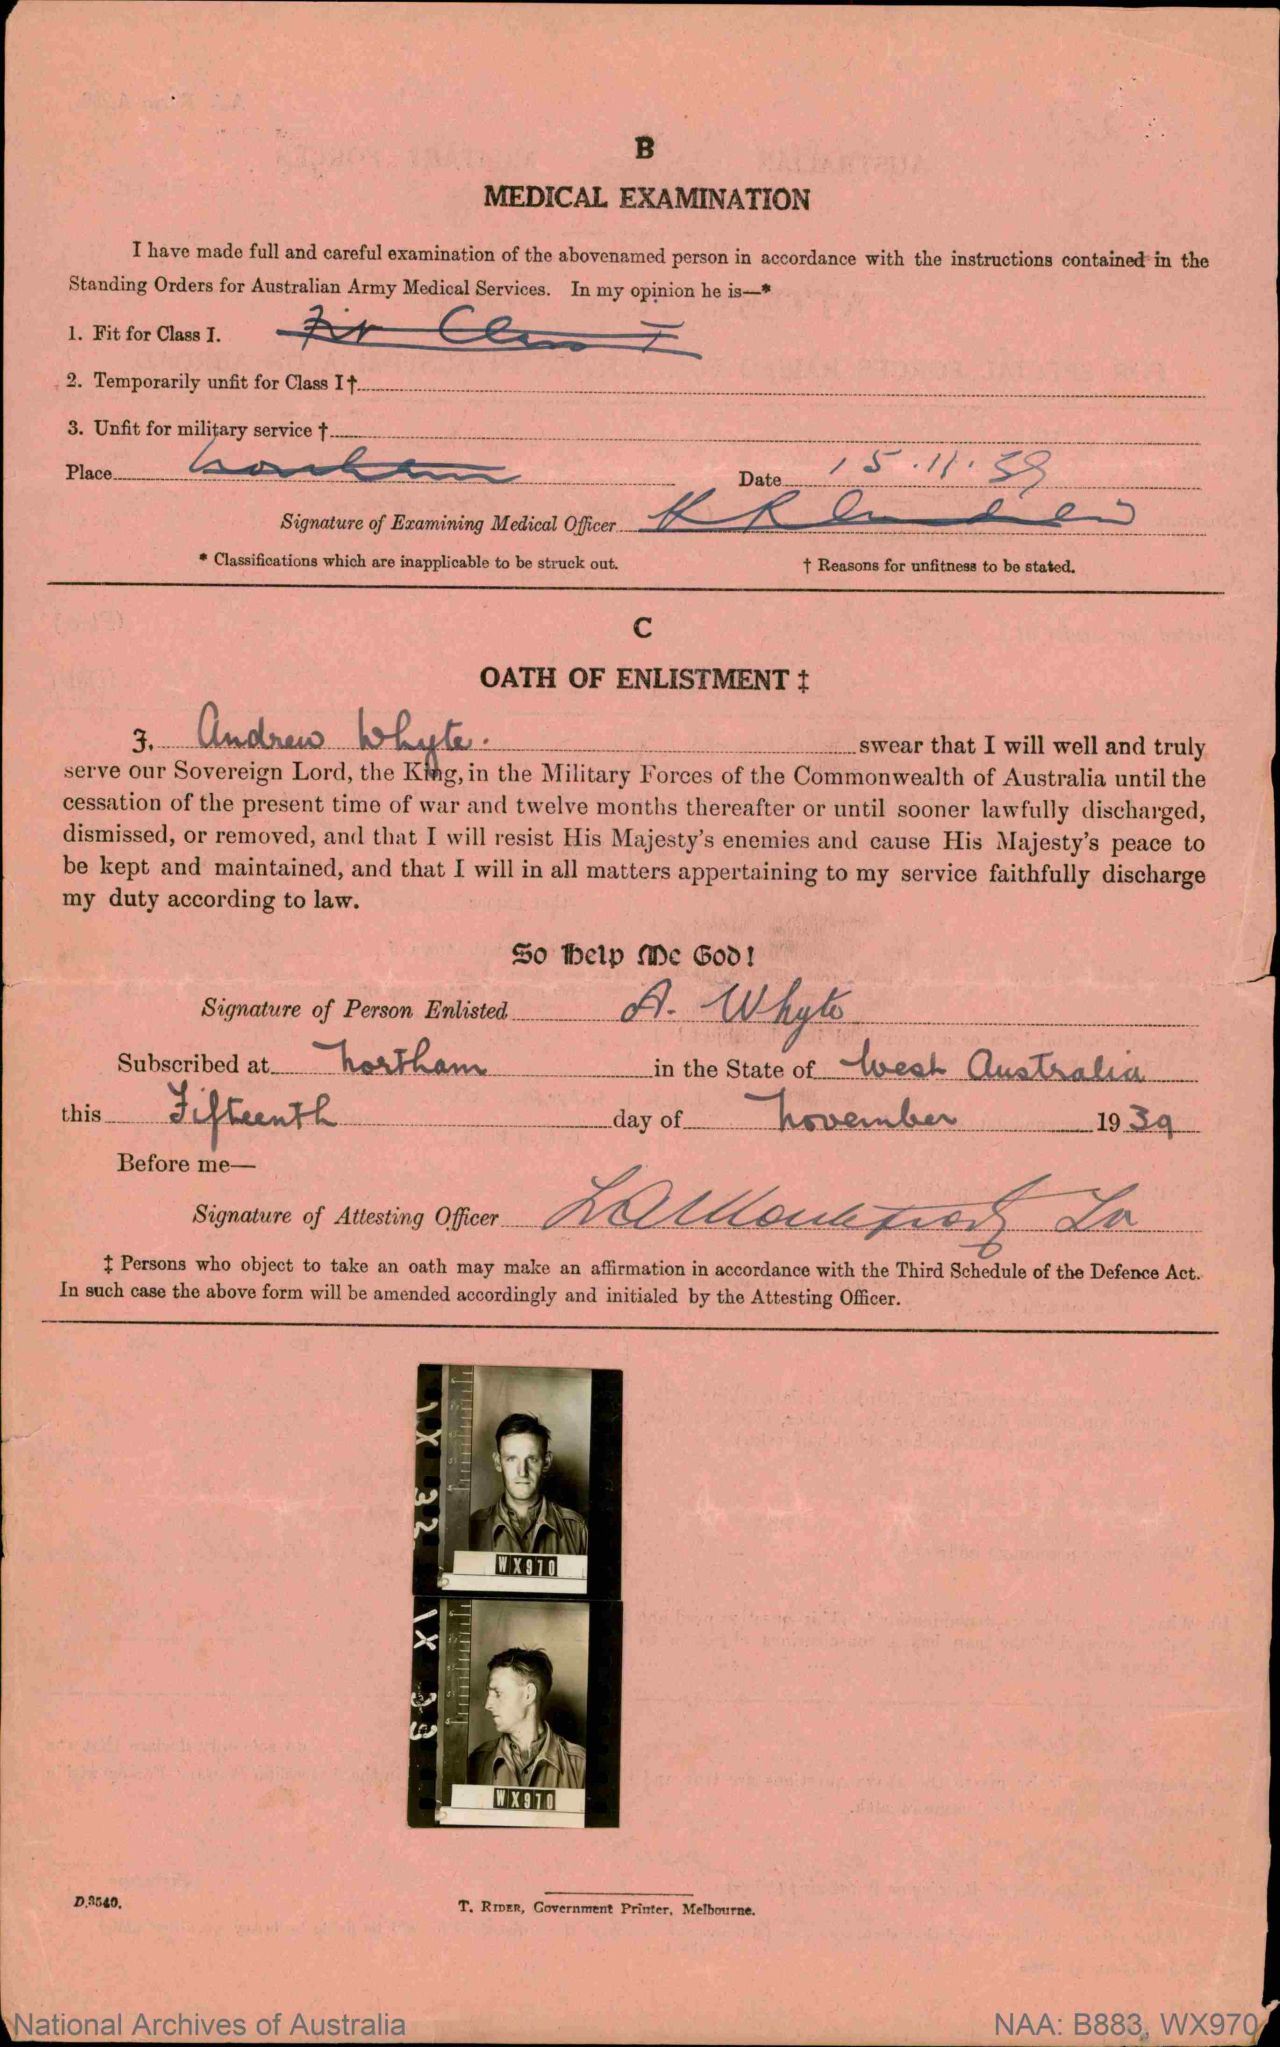 B
MEDICAL EXAMINATION
I have made full and careful examination of the abovenamed person in accordance with the instructions contained in the
Standing Orders for Australian Army Medical Services. In my opinion he is—*
1. Fit for Class I. Fit Class I
2. Temporarily unfit for Class I†
3. Unfit for military service †
Place Northam Date 15.11.39
Signature of Examining Medical Officer
* Classifications which are inapplicable to be struck out. † Reasons for unfitness to be stated.
C
OATH OF ENLISTMENT ‡
I, Andrew Whyte. swear that I will well and truly
serve our Sovereign Lord, the King, in the Military Forces of the Commonwealth of Australia until the
cessation of the present time of war and twelve months thereafter or until sooner lawfully discharged,
dismissed, or removed, and that I will resist His Majesty's enemies and cause His Majesty's peace to
be kept and maintained, and that I will in all matters appertaining to my service faithfully discharge
my duty according to law.
So Help Me God!
Signature of Person Enlisted A. Whyte
Subscribed at Northam in the State of West Australia
this Fifteenth day of November 1939
Before me—
Signature of Attesting Officer
‡ Persons who object to take an oath may make an affirmation in accordance with the Third Schedule of the Defence Act.
In such case the above form will be amended accordingly and initialed by the Attesting Officer.
WX970
WX970
D.3540.
T. RIDER, Government Printer, Melbourne.
National Archives of Australia NAA: B883, WX970